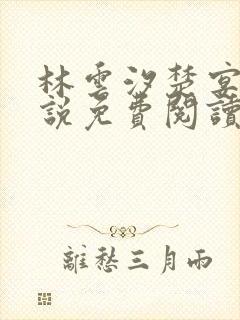 林雲汐楚宴
說免費閱讀
離愁三月雨